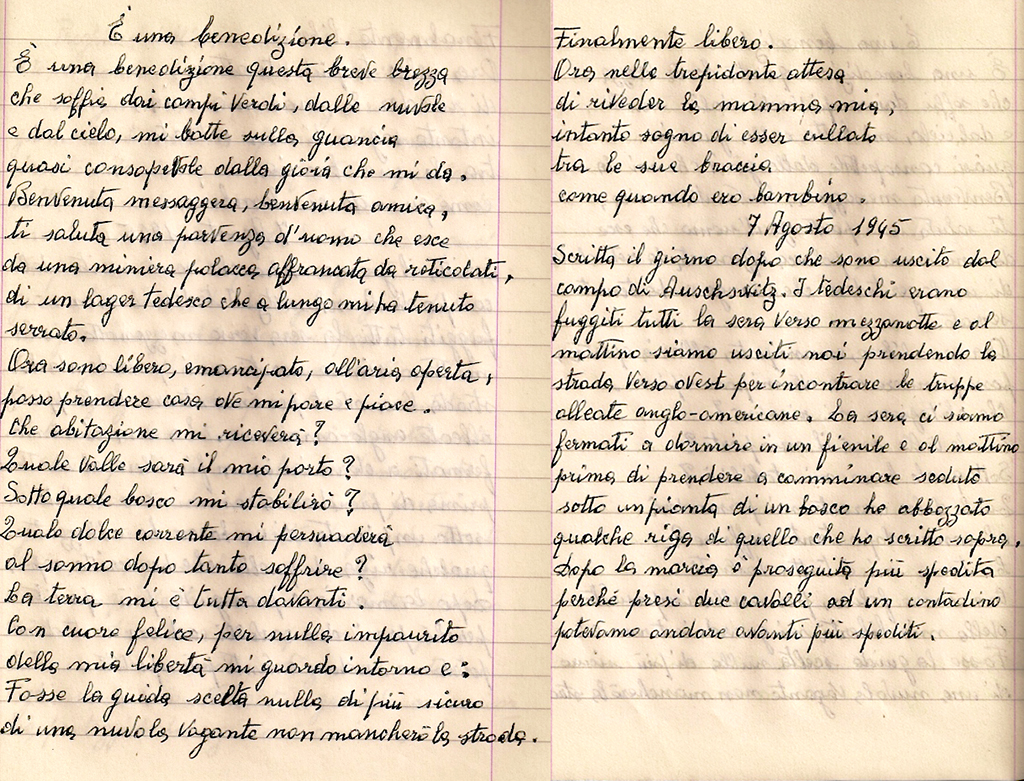 È una benedizione.
È una benedizione questa breve brezza
che soffia dai campi verdi, dalle nuvole
e dal cielo, mi batte sulla guancia
quasi consapevole dalla gioia che mi da.
Benvenuta messaggera, benvenuta amica,
ti saluta una parvenza d'uomo che esce
da una miniera polacca affrancata da reticolati,
di un lager tedesco che a lungo mi ha tenuto
serrato.
Ora sono libero, emancipato, all'aria aperta,
posso prendere casa ove mi pare e piace.
Che abitazione mi riceverà?
Quale valle sarà il mio porto?
Sotto quale bosco mi stabilirò?
Quale dolce corrente mi persuaderà
al sonno dopo tanto soffrire?
La terra mi è tutta davanti.
Con cuore felice, per nulla impaurito
della mia libertà mi guardo intorno e:
Fosse la guida scelta nulla di più sicuro
di una nuvola vagante non mancherò la strada.
Finalmente libero.
Ora nella trepidante attesa
di riveder la mamma mia,
intanto sogno di esser cullato
tra le sue braccia
come quando ero bambino.
7 Agosto 1945
Scritta il giorno dopo che sono uscito dal
campo di Auschswitz. I tedeschi erano
fuggiti tutti la sera verso mezzanotte e al
mattino siamo usciti noi prendendo la
strada verso ovest per incontrare le truppe
alleate anglo-americane. La sera ci siamo
fermati a dormire in un fienile e al mattino
prima di prendere a camminare seduto
sotto un pianta di un bosco ho abbozzato
qualche riga di quello che ho scritto sopra.
Dopo la marcia è proseguita più spedita
perché presi due cavalli ad un contadino
potevamo andare avanti più spediti.